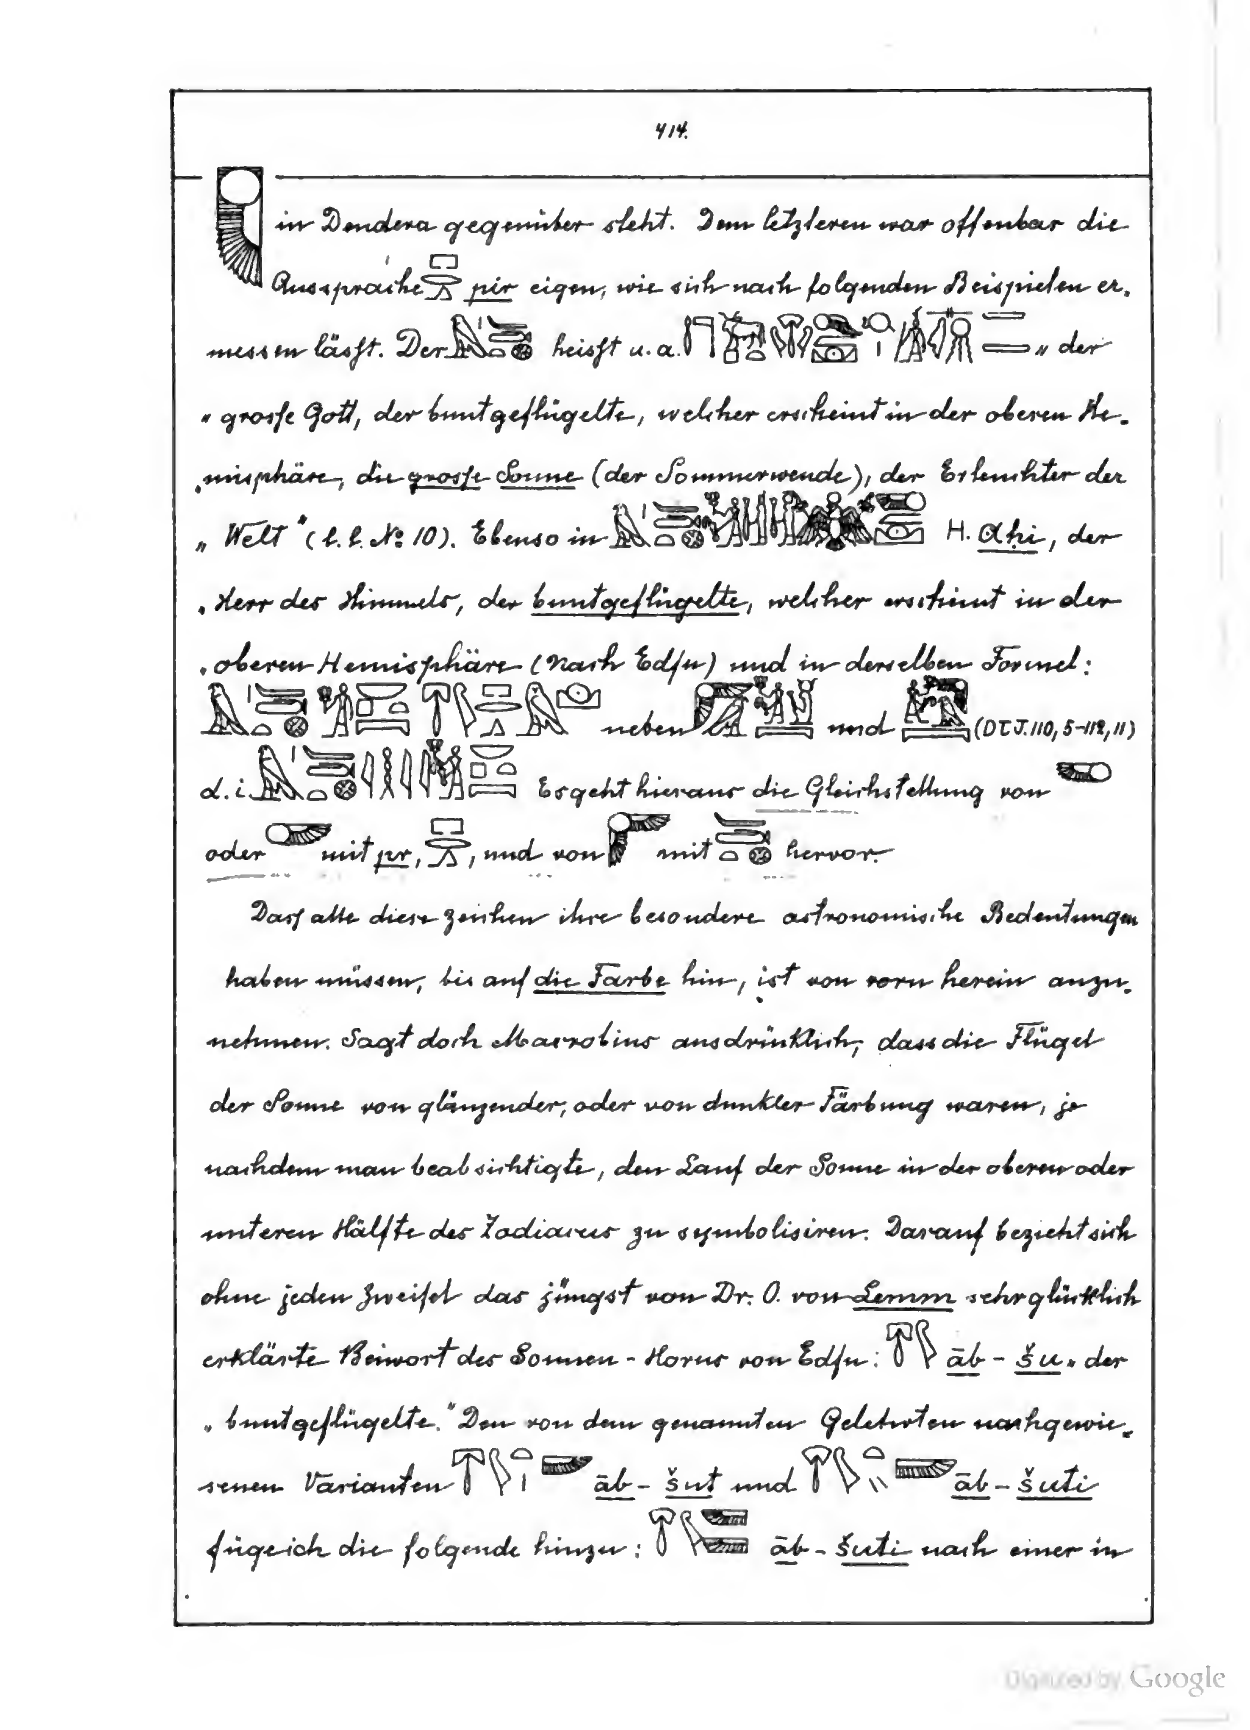 414.
in Dendera gegenüber steht. Dem letzteren war offenbar die
Aussprache pir eigen, wie sich nach folgenden Beispielen er-
messen läſst. Der heiſst u. a. „ der
„ groſse Gott, der buntgeflügelte, welcher erscheint in der oberen He-
„misphäre, die groſse Sonne (der Sommerwende), der Erleuchter der
„ Welt" (l. l. № 10). Ebenso in H. Aḥi, der
„ Herr des Himmels, der buntgeflügelte, welcher erscheint in der
„ oberen Hemisphäre (Nach Edfu) und in derselben Formel:
neben und (DTJ. 110, 5-112, 11)
d. i. Es geht hieraus die Gleichstellung von
oder mit pr, , und von mit hervor.
Daſs alle diese Zeichen ihre besondere astronomische Bedeutungen
haben müssen, bis auf die Farbe hin, ist von vorn herein anzu-
nehmen. Sagt doch Macrobius ausdrücklich, dass die Flügel
der Sonne von glänzender, oder von dunkler Färbung waren, je
nachdem man beabsichtigte, den Lauf der Sonne in der oberen oder
unteren Hälfte des Zodiacus zu symbolisiren. Darauf bezieht sich
ohne jeden Zweifel das jüngst von Dr. O. von Lemm sehr glücklich
erklärte Beiwort des Sonnen-Horus von Edfu: āb - šu „ der
„ buntgeflügelte." Den von dem genannten Gelehrten nachgewie-
senen Varianten āb - šut und āb - šuti
füge ich die folgende hinzu: āb - šuti nach einer in
Digitized by Google